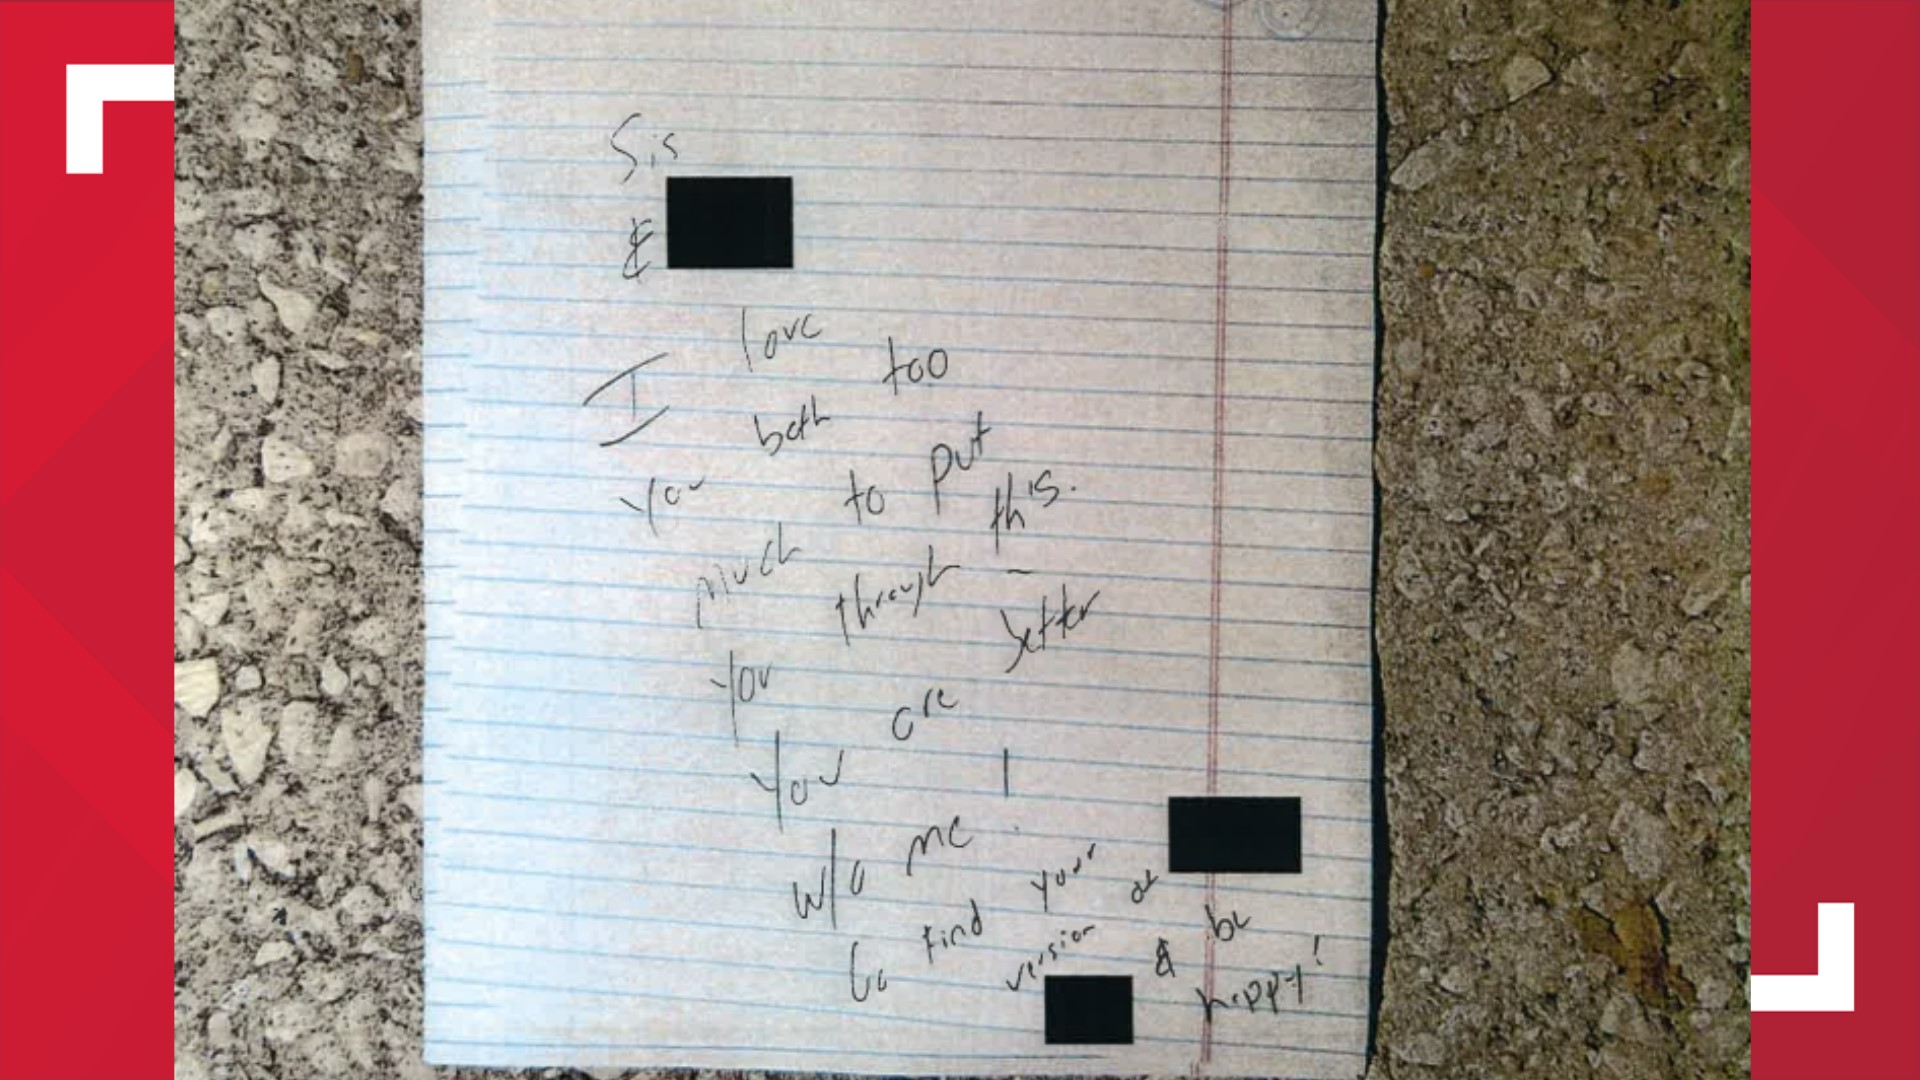 Sis
&
I love
you both too
much to put
you through this.
You are better
w/o me!
Go find your
version of
& be
happy!